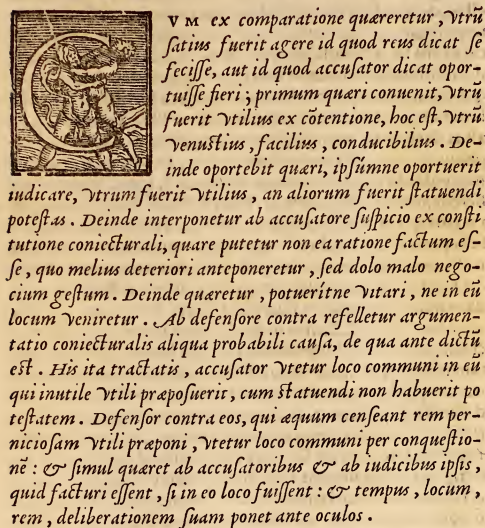 CVM ex comparatione quæreretur, vtrũ
ſatius fuerit agere id quod reus dicat ſe
feciſſe, aut id quod accuſator dicat opor-
tuiſſe fieri; primum quæri conuenit, vtrũ
fuerit vtilius ex cõtentione, hoc eſt, vtrũ
venuſtius, facilius, conducibilius. De-
inde oportebit quæri, ipſúmne oportuerit
iudicare, vtrum fuerit vtilius, an aliorum fuerit ſtatuendi
poteſtas. Deinde interponetur ab accuſatore ſuſpicio ex conſti
tutione coniecturali, quare putetur non ea ratione factum eſ-
ſe, quo melius deteriori anteponeretur, ſed dolo malo nego-
cium geſtum. Deinde quæretur, potuerítne vitari, ne in eũ
locum veniretur. Ab defenſore contra refelletur argumen-
tatio coniecturalis aliqua probabili cauſa, de qua ante dictũ
eſt. His ita tractatis, accuſator vtetur loco communi in eũ
qui inutile vtili præpoſuerit, cum ſtatuendi non habuerit po
teſtatem. Defenſor contra eos, qui æquum cenſeant rem per-
nicioſam vtili præponi, vtetur loco communi per conqueſtio-
nẽ: & ſimul quæret ab accuſatoribus & ab iudicibus ipſis,
quid facturi eſſent, ſi in eo loco fuiſſent: & tempus, locum,
rem, deliberationem ſuam ponet ante oculos.